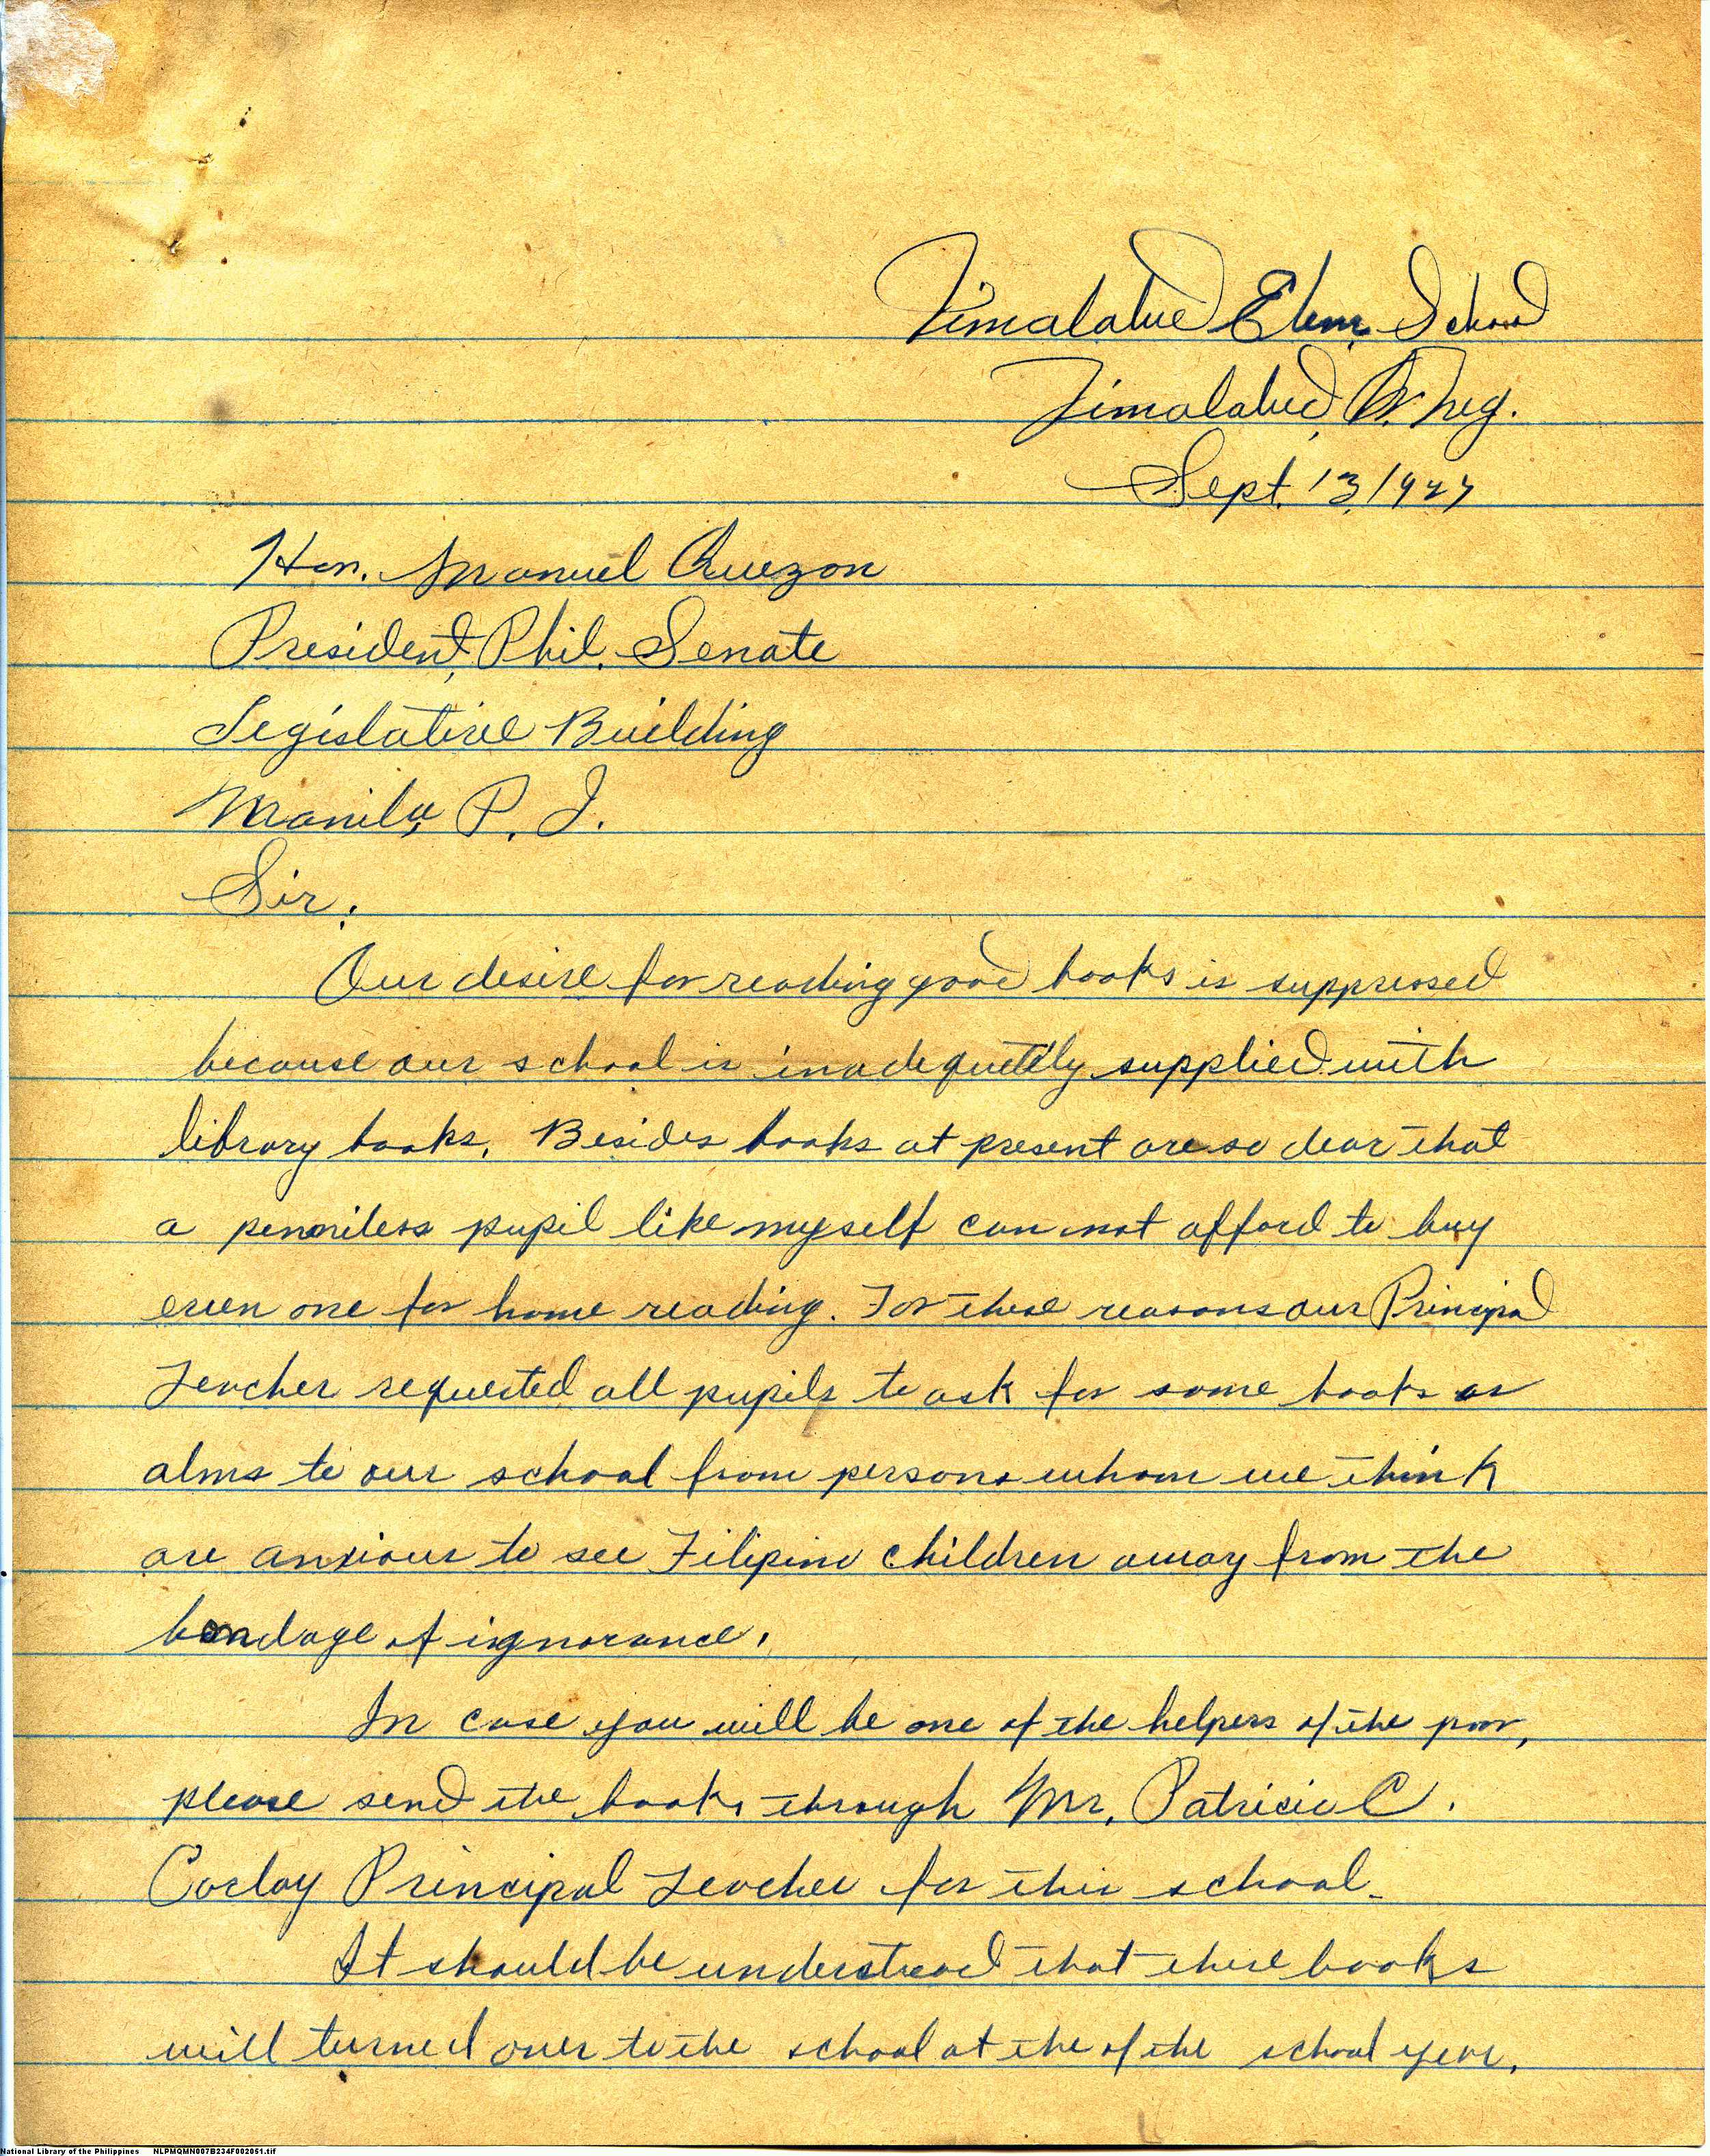 Jimalalud Elem. School
Jimalalud, Or. Neg.
Sept. 13, 1927
Hon. Manuel Quezon
President, Phil. Senate
Legislative Building
Manila, P. I.
Sir:
Our desire for reading good books is suppressed
because our school is inadequetily supplied with
library books. Besides books at present are so dear that
a penniless pupil like myself can not afford to buy
even one for home reading. For these reasons our Principal
Teacher requested all pupils to ask for some books as
alms to our school from persons whom we think
are anxious to see Filipino children away from the
bondage of ignorance.
In case you will be one of the helpers of the poor,
please send the books through Mr. Patricio C.
Principal Teacher for this school.
It should be understood that these books
will turned over to the school at the of the school year.
National Library of the Philippines NLPMQMN007B234F002051.tif